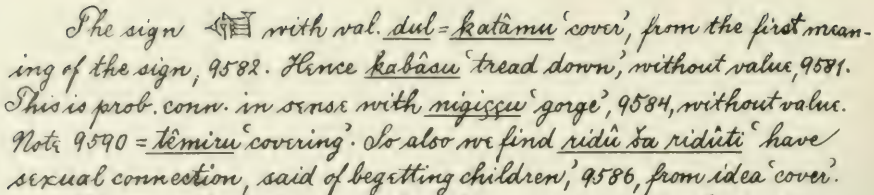 The sign with val. dul = katâmu 'cover', from the first mean-
ing of the sign, 9582. Hence kabâsu 'tread down', without value, 9581.
This is prob. conn. in sense with nigiççu 'gorge', 9584, without value.
Note 9590 = têmiru 'covering'. So also we find ridû ša ridûti 'have
sexual connection, said of begetting children,' 9586, from idea 'cover'.